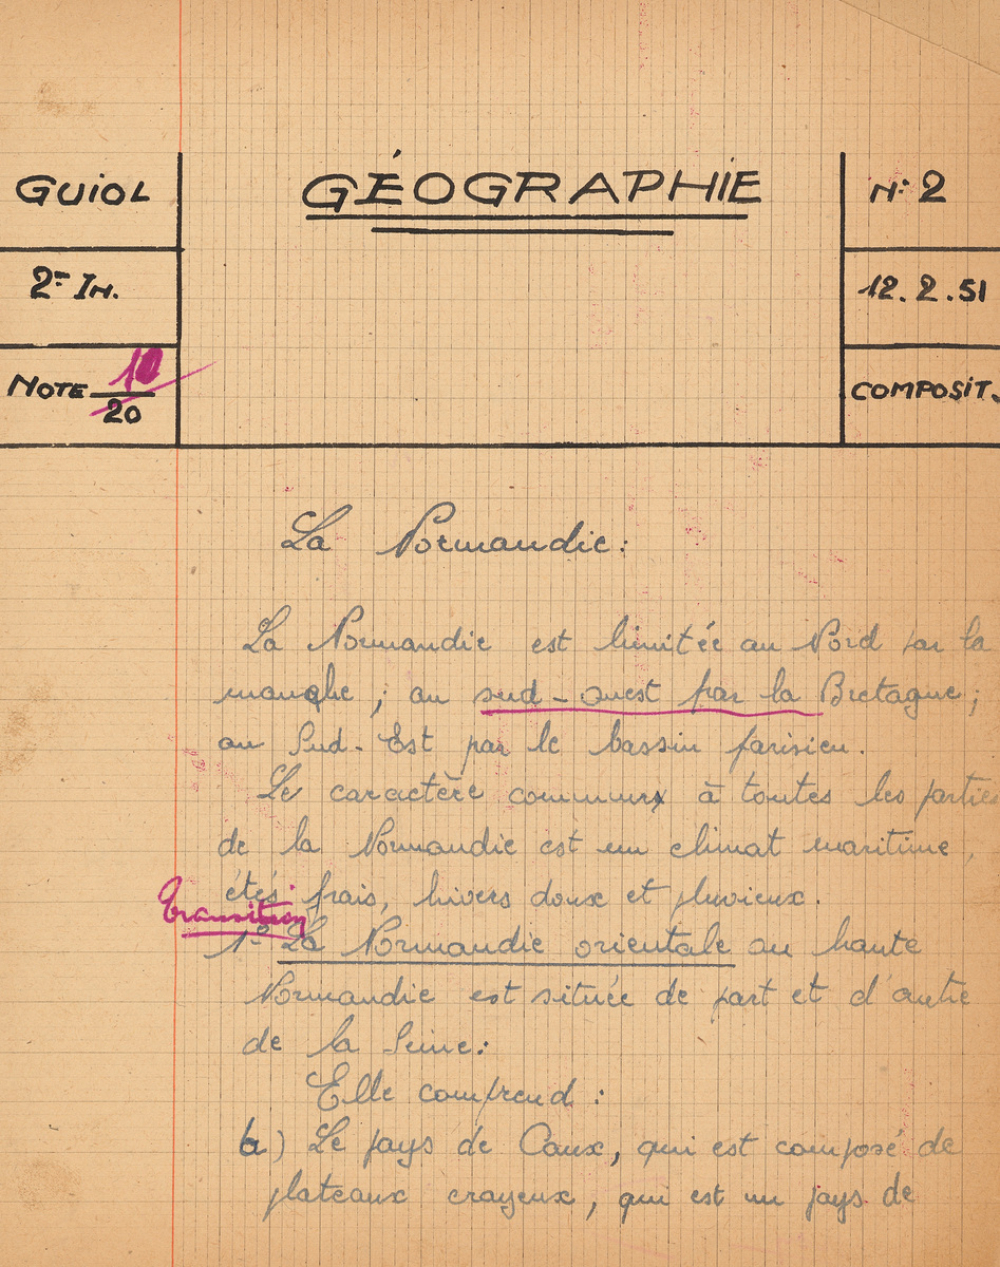 GUIOL
GÉOGRAPHIE
N: 2
2e IM.
12.2.51
NOTE 10/20
COMPOSIT.
La Normandie :
La Normandie est limitée au Nord par la
manche ; au sud-ouest par la Bretagne ;
au Sud-Est par le bassin parisien.
Le caractère commun à toutes les parties
de la Normandie est un climat maritime,
étés frais, hivers doux et pluvieux.
Transition
1º La Normandie orientale ou haute
Normandie est située de part et d'autre
de la Seine :
Elle comprend :
a) Le pays de Caux, qui est composé de
plateaux crayeux, qui est un pays de